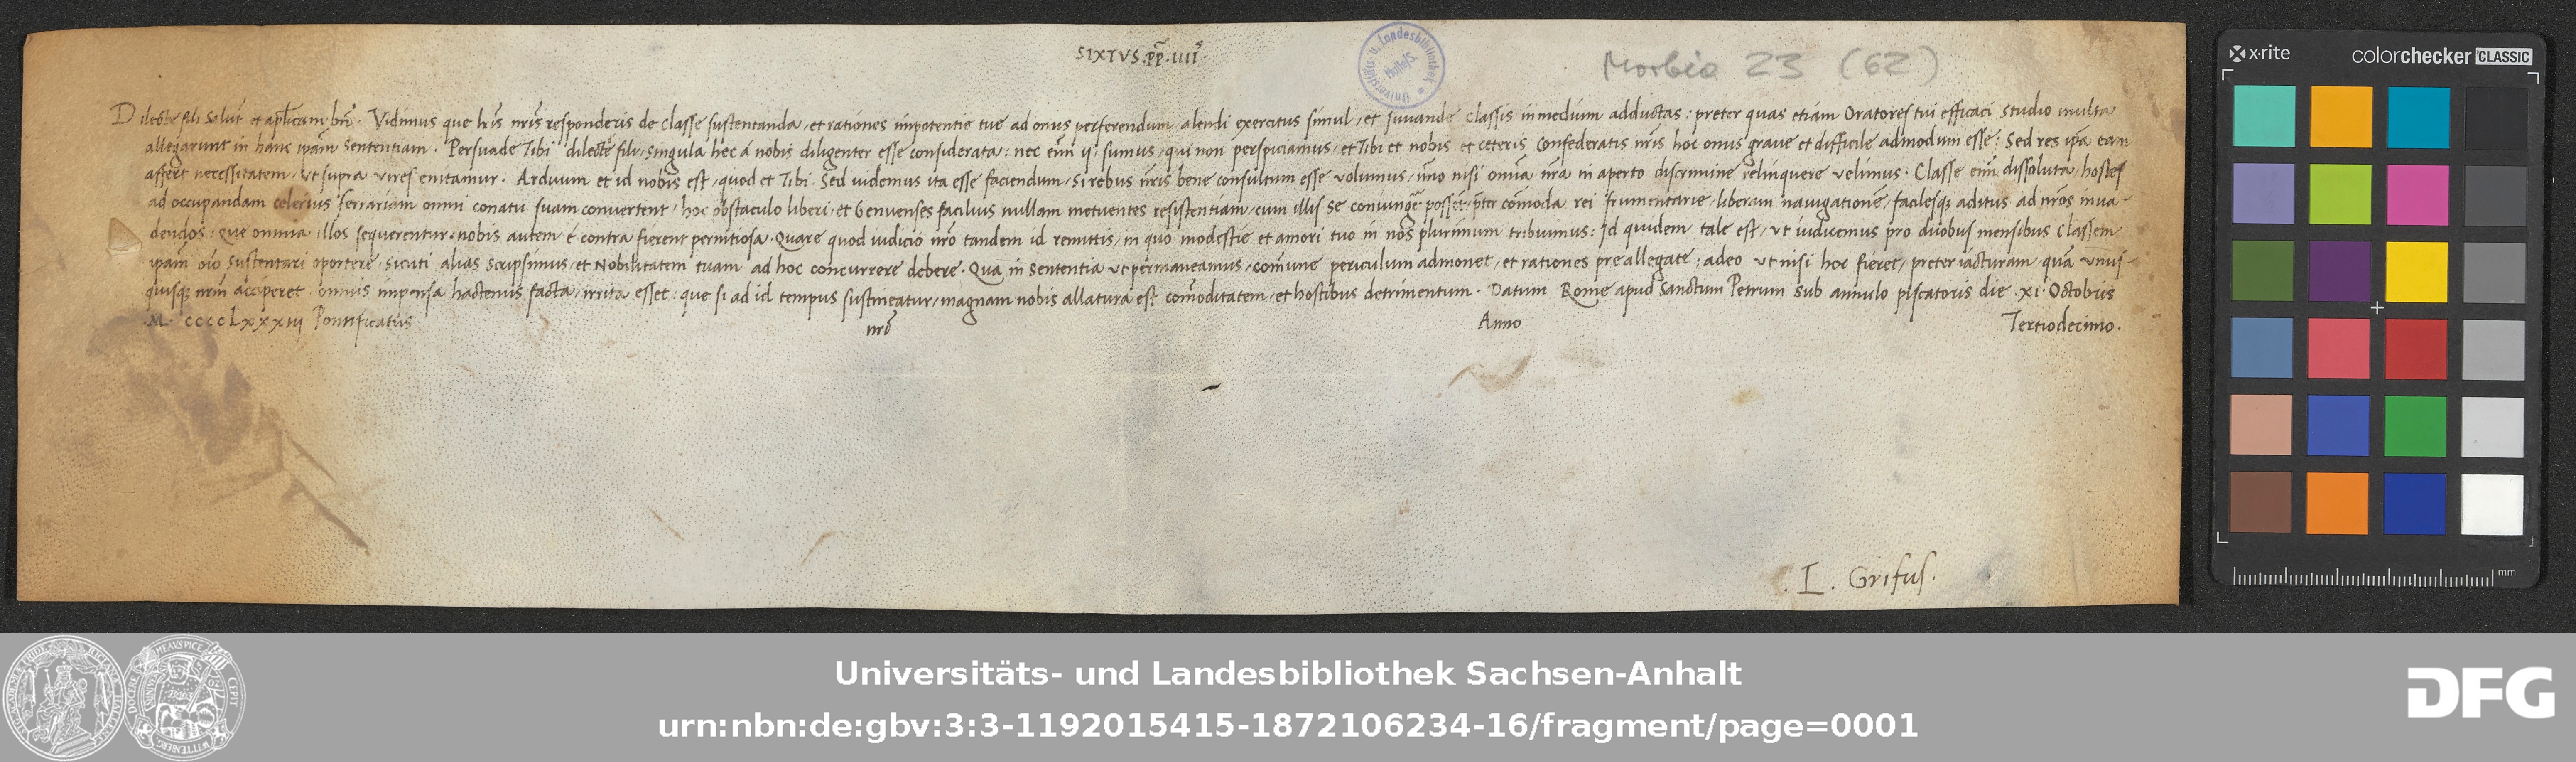 SIXTVS. pp. iiii.
Morbio 23 (62)
Universitäts- u. Landesbibliothek Halle/S.
Dilecte fili salut̄ et aplicam bn̄. Vidimus que lr̄is nr̄is responderis de classe sustentanda, et rationes impotentie tue ad onus perferendum, alendi exercitus simul, et iuuande classis in medium adductas: preter quas etiam Oratores tui efficaci studio multa
allegarunt in hanc ipām sententiam. Persuade Tibi dilecte fili, singula hec á nobis diligenter esse considerata: nec eni̅ ij sumus, qui non perspiciamus, et Tibi et nobis et ceteris Confederatis nr̄is hoc onus graue et difficile admodum esse: Sed res ipā eam
affert necessitatem, ut supra vires enitamur. Arduum et id nobis est, quod et Tibi. Sed uidemus ita esse faciendum, si rebus nr̄is bene consultum esse volumus, nisi omnia nr̄a in aperto discrimine relinquere velimus. Classe eni̅ dissoluta, hostes
ad occupandam celerius ferrariam omni conatu suam conuertent, hoc obstaculo liberi, et Genuenses facilius nullam metuentes resistentiam, cum illis se coniungere possent, pr̄ter com̄oda rei frumentarie, liberam nauigationē, facilesq; aditus ad nr̄os inua-
dendos: que omnia illos sequerentur: nobis autem é contra fierent pernitiosa. Quare quod iudicio nr̄o tandem id remittis, in quo modestie et amori tuo in nos plurimum tribuimus: Id quidem tale est, ut iudicemus pro duobus mensibus classem
ipām sustentari oportere, sicuti alias scripsimus, et Nobilitatem tuam ad hoc concurrere debere. Qua in sententia ut permaneamus, com̄une periculum admonet, et rationes preallegate: adeo ut nisi hoc fieret, preter iacturam, quā vnus-
quisq; nr̄m acciperet omnis impensa hactenus facta, irrita esset: que si ad id tempus sustineatur, magnam nobis allatura est com̄oditatem, et hostibus detrimentum. Datum Rome apud Sanctum Petrum sub annulo piscatoris die .xi. Octobris
.M. ccccLxxxiii Pontificatus nr̄i Anno Tertiodecimo.
. I. Grifus.
x·rite colorchecker CLASSIC
mm
Universitäts- und Landesbibliothek Sachsen-Anhalt
urn:nbn:de:gbv:3:3-1192015415-1872106234-16/fragment/page=0001
DFG